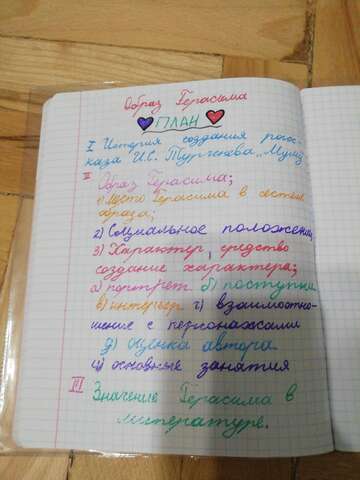 Образ Герасима
ПЛАН
I История создания расс-
каза И.С. Тургенева „Муму
II Образ Герасима;
1) Место Герасима в систем
образа;
2) Социальное положение,
3) Характер, средство
создание характера;
а) портрет б) поступки
в) интерьер г) взаимоотно-
шения с персонажами
д) оценка автора
4) основные занятия
III Значение Герасима в
литературе.